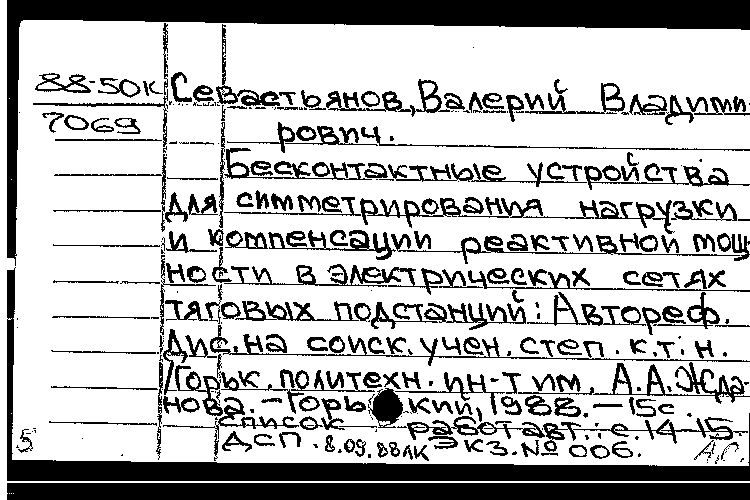 88-50к Севастьянов, Валерий Владими-
7069 рович.
Бесконтактные устройства
для симметрирования нагрузки
и компенсации реактивной мощ-
ности в электрических сетях
тяговых подстанций: Автореф.
Дис. на соиск. учен. степ. к.т.н.
/Горьк. политехн. ин-т им. А.А. Жда-
нова. - Горький, 1988. - 15с.
список работ авт.: с. 14-15.
5 ДСП. 8.09.88 ЛК Экз. № 006. А.С.